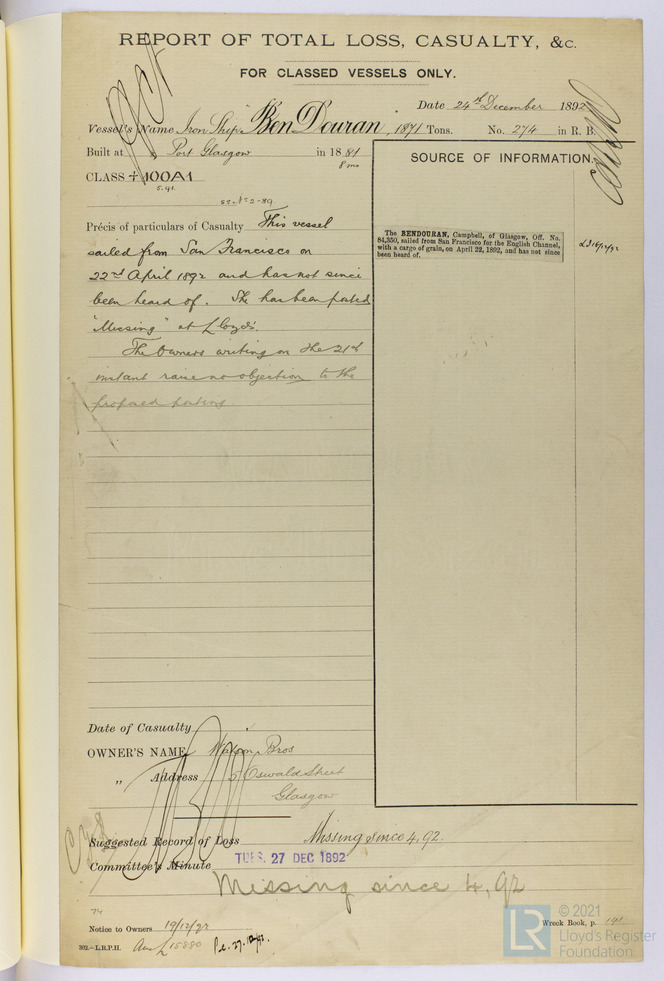 REPORT OF TOTAL LOSS, CASUALTY, &c.
FOR CLASSED VESSELS ONLY.
Date 24th December 1892
Vessel's Name Iron Ship "Ben Douran", 1871 Tons. No. 274 in R. B.
Built at Port Glasgow in 1881
8 mo
CLASS +100A1
5.91
SS No 2-89
SOURCE OF INFORMATION.
Précis of particulars of Casualty This vessel
sailed from San Francisco on
22nd April 1892 and has not since
been heard of. She has been posted
"Missing" at Lloyd's.
The Owners writing on the 21st
instant raise no objection to the
proposed posting
The BENDOURAN, Campbell, of Glasgow, Off. No.
84,350, sailed from San Francisco for the English Channel,
with a cargo of grain, on April 22, 1892, and has not since
been heard of.
Date of Casualty
OWNER'S NAME Watson Bros
„ Address 5 Oswald Street
Glasgow
Suggested Record of Loss Missing since 4,92.
Committee's Minute TUES. 27 DEC 1892
Missing since 4,92
74
Notice to Owners 19/12/92
Wreck Book, p.
302.—L.R.P.H.
© 2021
LR Lloyd's Register
Foundation